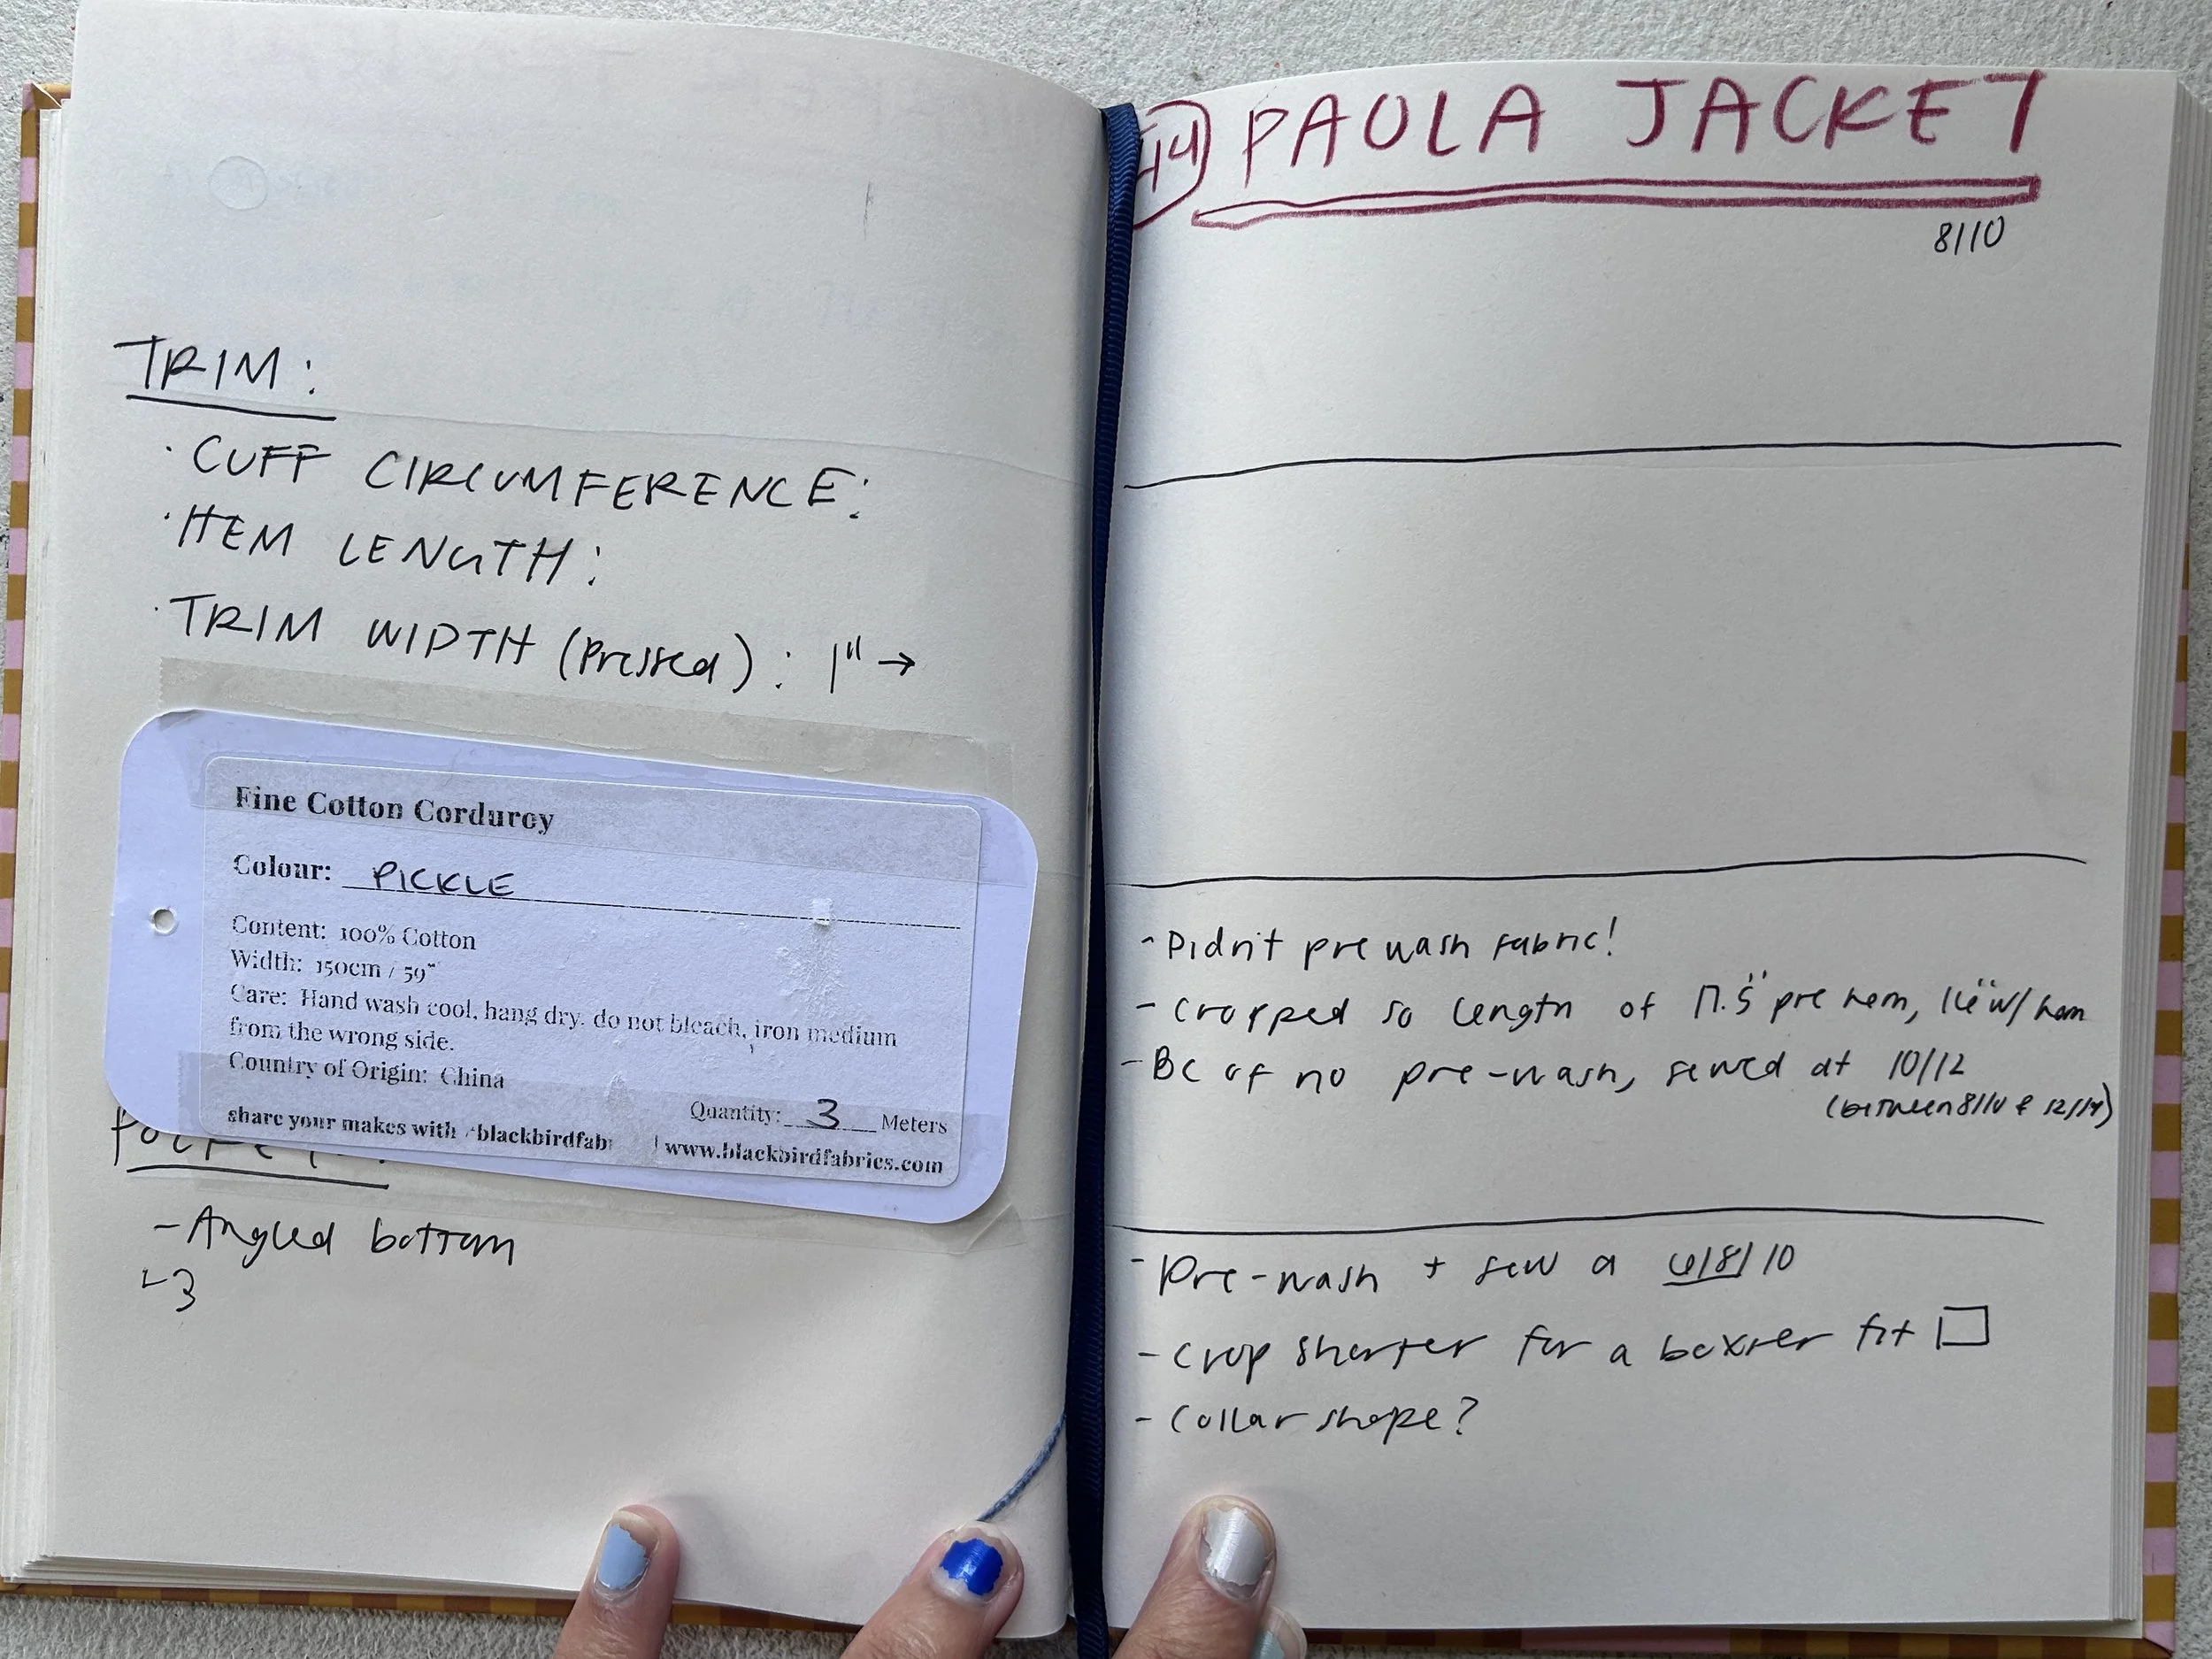 TRIM:
· CUFF CIRCUMFERENCE:
· HEM LENGTH:
· TRIM WIDTH (Pressed): 1" →
Fine Cotton Corduroy
Colour: PICKLE
Content: 100% Cotton
Width: 150cm / 59"
Care: Hand wash cool, hang dry, do not bleach, iron medium
from the wrong side.
Country of Origin: China
Quantity: 3 Meters
share your makes with #blackbirdfab | www.blackbirdfabrics.com
- Angled bottom
↳ 3
14 PAOLA JACKET
8/10
- Didn't pre wash fabric!
- Cropped so length of 17.5" pre hem, 16" w/ hem
- BC of no pre-wash, sewed at 10/12
(between 8/10 & 12/14)
- Pre-wash + sew a 6/8/10
- Crop shorter for a boxier fit
- Collar shape?